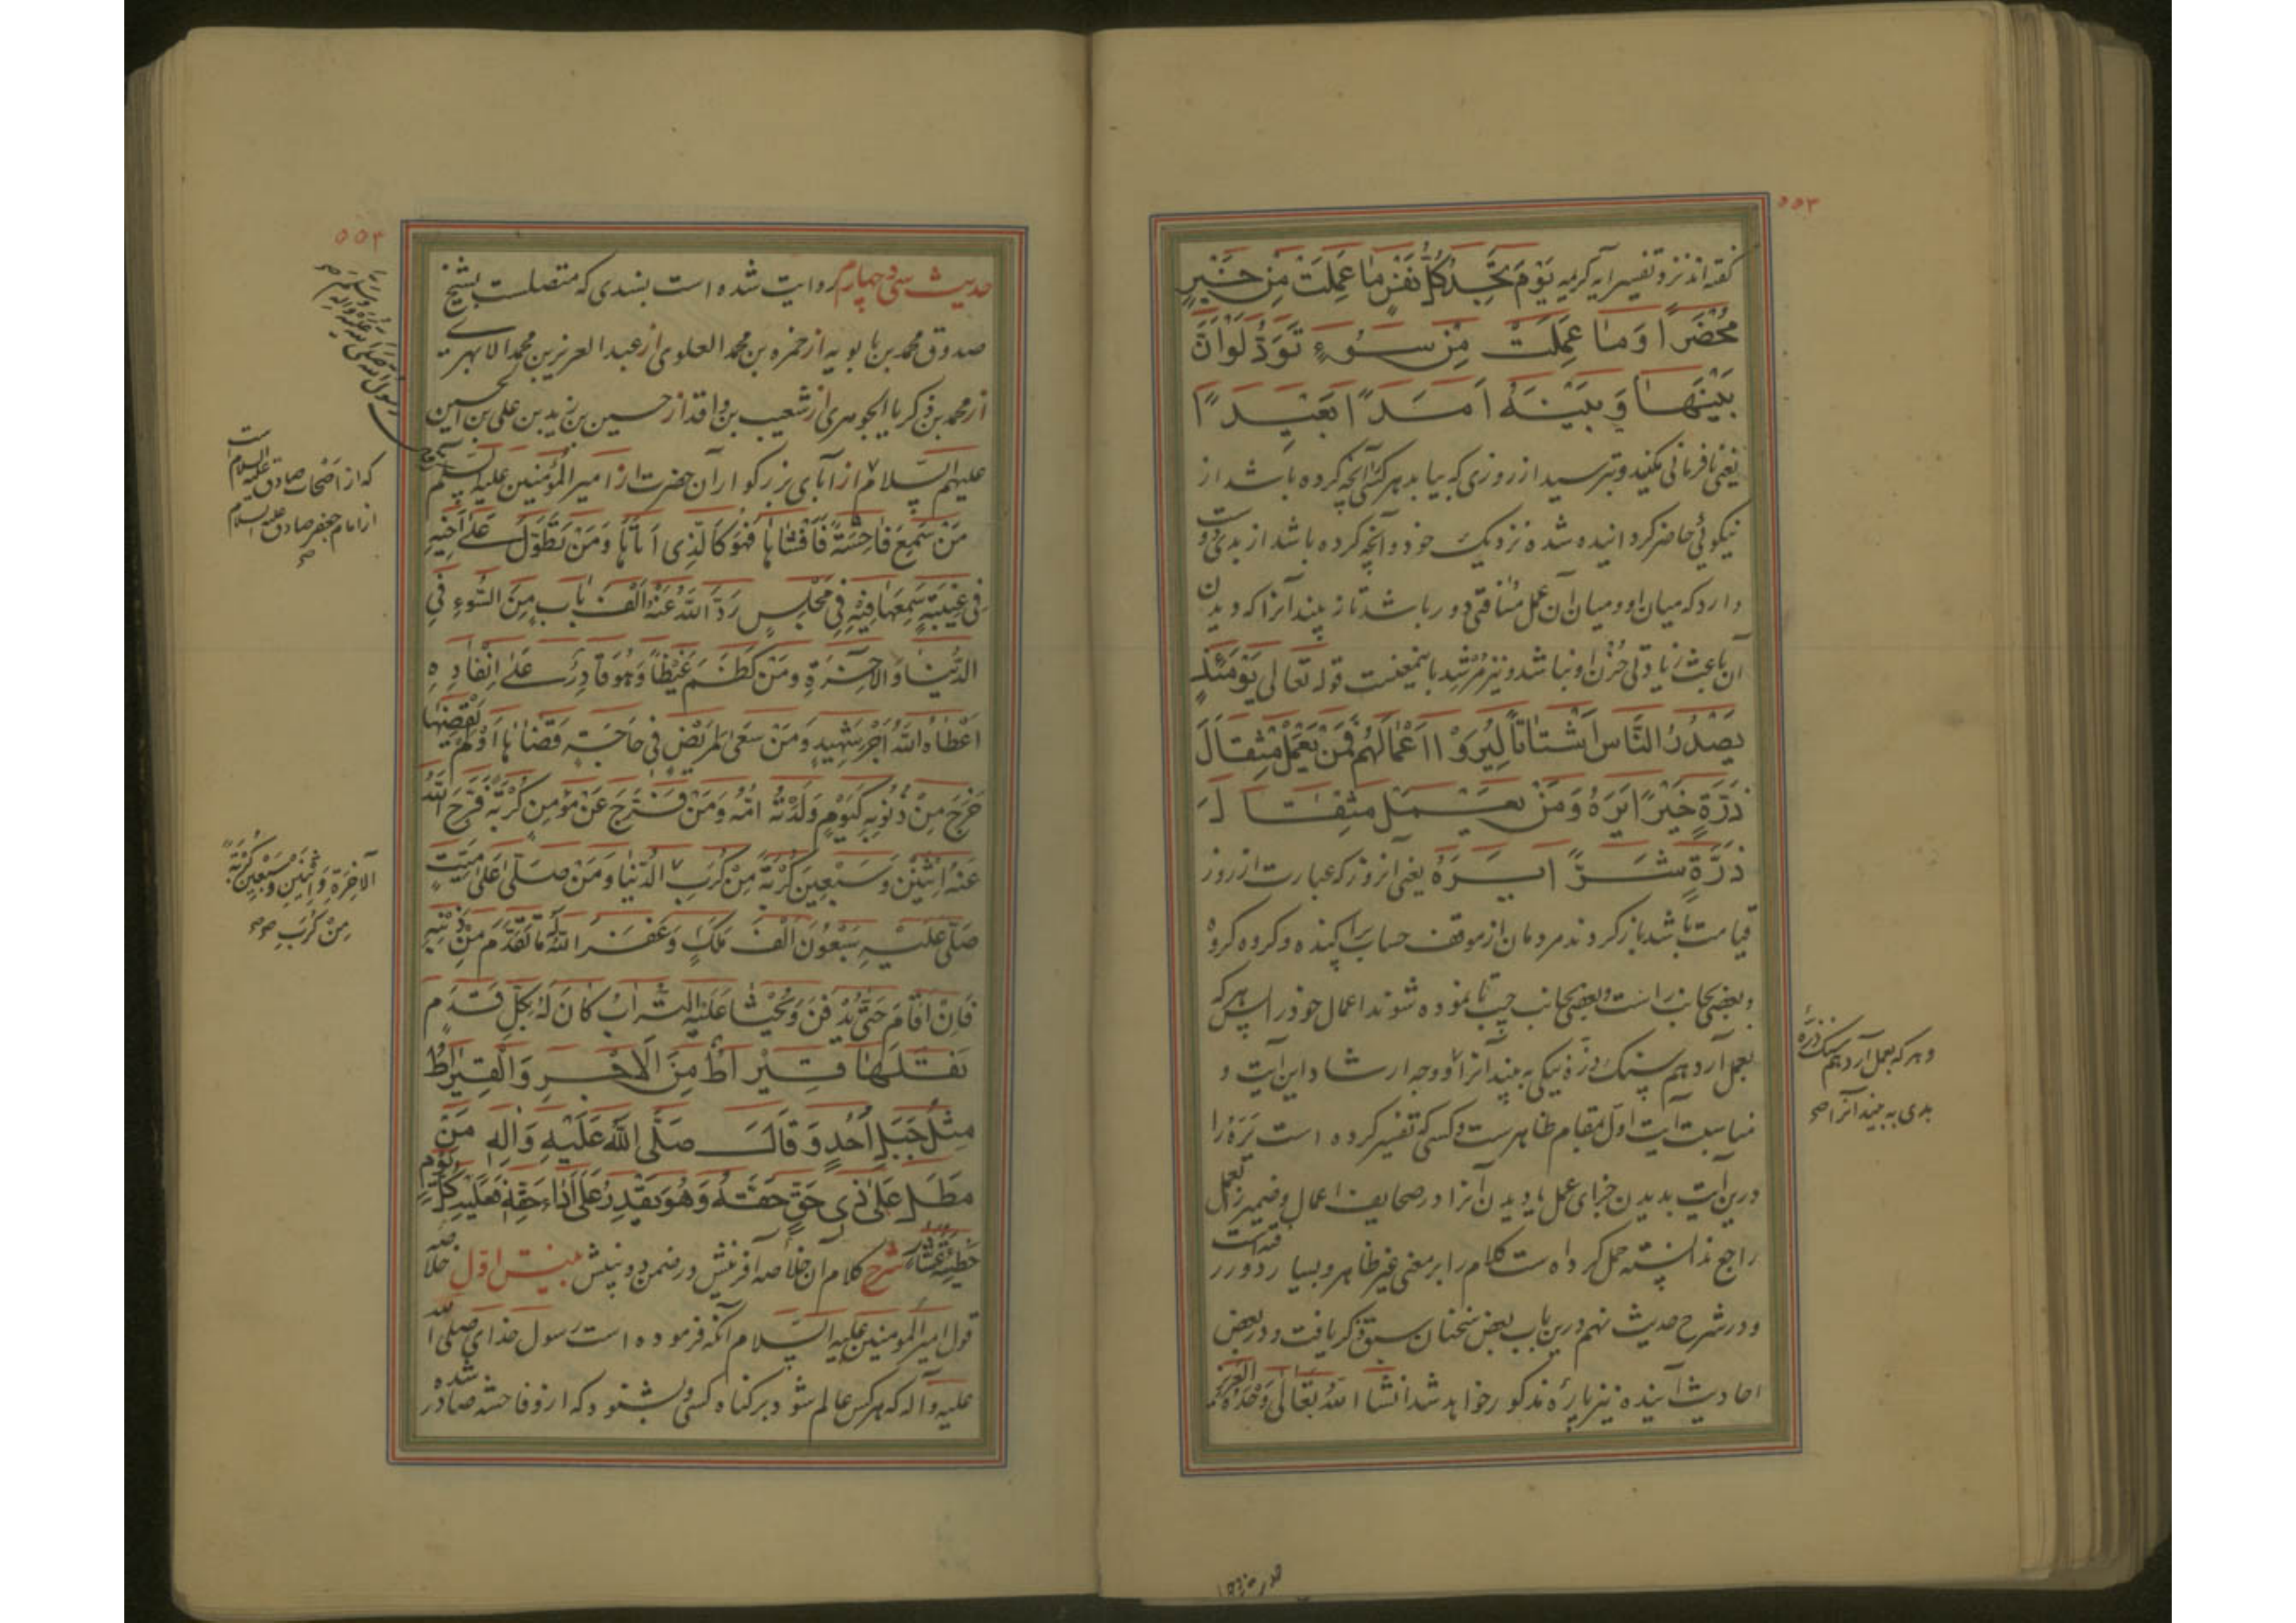 ۵۵۳
گفته‌اند نیز و تفسیر آیه کریمه یَوْمَ تَجِدُ کُلُّ نَفْسٍ مَا عَمِلَتْ مِنْ خَیْرٍ
مُحْضَرًا وَمَا عَمِلَتْ مِنْ سُوءٍ تَوَدُّ لَوْ أَنَّ
بَیْنَهَا وَبَیْنَهُ أَمَدًا بَعِیدًا
یعنی نافرمانی مکنید و بترسید از روزی که بیابد هر کسی آنچه کرده باشد از
نیکوئی حاضر گردانیده شده نزدیک خود و آنچه کرده باشد از بدی دوست
دارد که میان او و میان آن عمل مسافتی دور باشد تا نه بیند آنرا که دیدن
آن باعث زیادتی حزن او نباشد و نیز مرشد باینمعنیست قوله تعالی یَوْمَئِذٍ
یَصْدُرُ النَّاسُ أَشْتَاتًا لِیُرَوْا أَعْمَالَهُمْ فَمَنْ یَعْمَلْ مِثْقَالَ
ذَرَّةٍ خَیْرًا یَرَهُ وَمَنْ یَعْمَلْ مِثْقَالَ
ذَرَّةٍ شَرًّا یَرَهُ یعنی آنروز که عبارت از روز
قیامت باشد باز گردند مردمان از موقف حساب پراکنده و گروه گروه
و بعضی بجانب راست و بعضی بجانب چپ تا نموده شوند اعمال خود را پس هر که
بعمل آرد هم سنگ ذره نیکی به بیند آنرا و وجه ارشاد این آیت و
مناسبت آیت اول بمقام ظاهرست و کسی که تفسیر کرده است یره را
درین آیت بدیدن جزای عمل یا دیدن آنرا در صحایف اعمال و ضمیر را بعمل
راجع ندانسته حمل کرده است کلام را بر معنی غیر ظاهر و بسیار دور رفته است
و در شرح حدیث نهم درین باب بعض سخنان سبق ذکر یافت و در بعض
احادیث آینده نیز پاره مذکور خواهد شد انشاء الله تعالی وحده العزیز
و هر که بعمل آرد هم سنگ ذره
بدی به بیند آنرا صح
۵۵۴
حدیث سی و چهارم روایت شده است بسندی که متصلست بشیخ
صدوق محمد بن بابویه از حمزه بن محمد العلوی از عبد العزیز بن محمد الابهری
از محمد بن زکریا الجوهری از شعیب بن واقد از حسین بن زید بن علی بن الحسین
علیهم السلام از آبای بزرگوار آن حضرت از امیر المؤمنین علیه السلام
مَنْ سَمِعَ فَاحِشَةً فَأَفْشَاهَا فَهُوَ کَالَّذِی أَتَاهَا وَمَنْ تَطَوَّلَ عَلَی أَخِیهِ
فِی غِیبَةٍ سَمِعَهَا فِیهِ فِی مَجْلِسٍ رَدَّ اللَّهُ عَنْهُ أَلْفَ بَابٍ مِنَ السُّوءِ فِی
الدُّنْیَا وَالْآخِرَةِ وَمَنْ کَظَمَ غَیْظًا وَهُوَ قَادِرٌ عَلَی إِنْفَاذِهِ
أَعْطَاهُ اللَّهُ أَجْرَ شَهِیدٍ وَمَنْ سَعَی لِمَرِیضٍ فِی حَاجَةٍ قَضَاهَا أَوْ لَمْ یَقْضِهَا
خَرَجَ مِنْ ذُنُوبِهِ کَیَوْمٍ وَلَدَتْهُ أُمُّهُ وَمَنْ فَرَّجَ عَنْ مُؤْمِنٍ کُرْبَةً فَرَّجَ اللَّهُ
عَنْهُ اثْنَیْنِ وَسَبْعِینَ کُرْبَةً مِنْ کُرَبِ الدُّنْیَا وَمَنْ صَلَّی عَلَی مَیِّتٍ
صَلَّی عَلَیْهِ سَبْعُونَ أَلْفَ مَلَکٍ وَغَفَرَ اللَّهُ لَهُ مَا تَقَدَّمَ مِنْ ذَنْبِهِ
فَإِنْ أَقَامَ حَتَّی یُدْفَنَ وَیُحْثَا عَلَیْهِ التُّرَابُ کَانَ لَهُ بِکُلِّ قَدَمٍ
نَقَلَهَا قِیرَاطٌ مِنَ الْأَجْرِ وَالْقِیرَاطُ
مِثْلُ جَبَلِ أُحُدٍ وَقَالَ صَلَّی اللَّهُ عَلَیْهِ وَآلِهِ مَنْ
مَطَلَ عَلَی ذِی حَقٍّ حَقَّهُ وَهُوَ یَقْدِرُ عَلَی أَدَاءِ حَقِّهِ فَعَلَیْهِ کُلَّ یَوْمٍ
خَطِیئَةُ عَشَّارٍ شرح کلام آن خلاصه آفرینش در ضمن دو بینش بینش اول خلاصه
قول امیر المومنین علیه السلام آنکه فرموده است رسول خدای صلی الله
علیه و آله که هر کس عالم شود بر گناه کسی و بشنود که ازو فاحشه صادر شده
که از اصحاب صادق علیه السلام است
از امام جعفر صادق علیه السلام
صح
الْآخِرَةِ وَاثْنَیْنِ وَسَبْعِینَ کُرْبَةً
مِنْ کُرَبِ صح